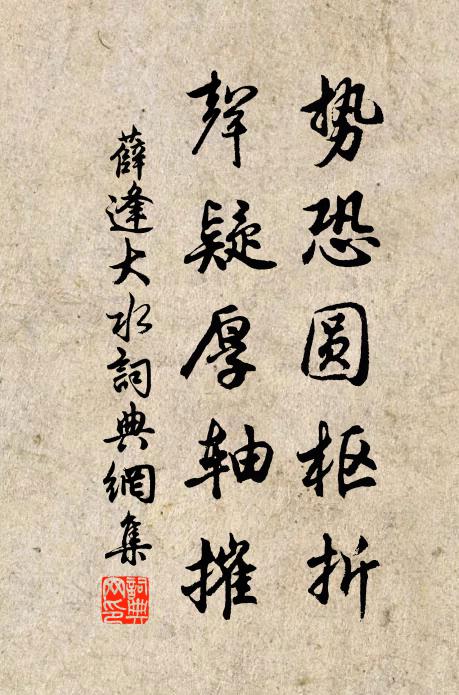 势恐圆枢折
声疑厚轴摧
薛逢大水詞典網集
詞典网印